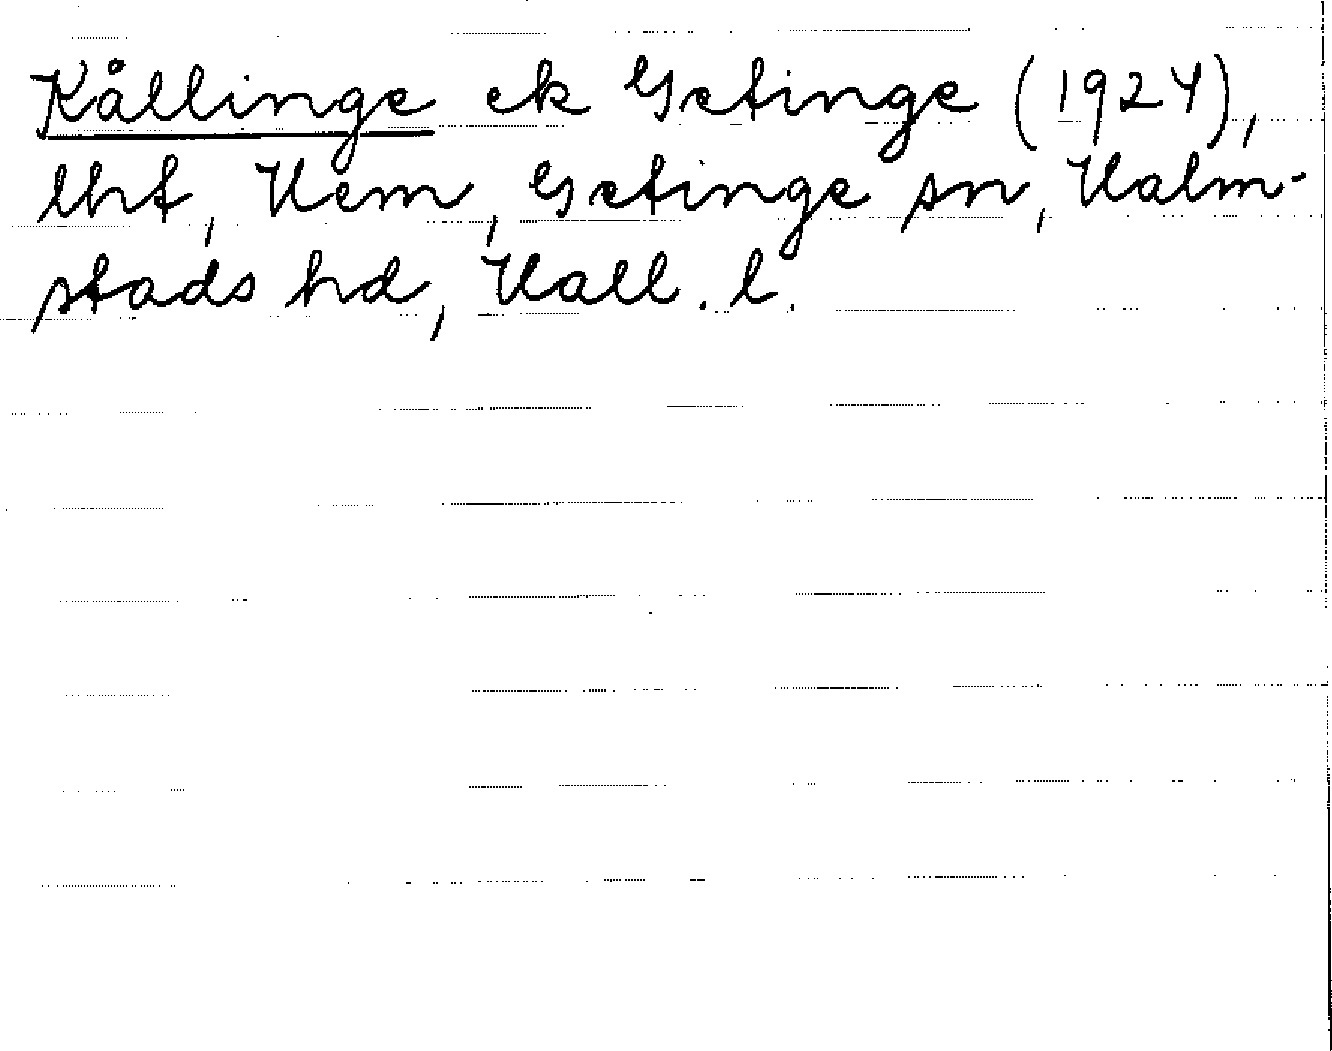 Kållinge ek Getinge (1924),
lht, Hem, Getinge sn, Halm-
stads hd, Hall. l.